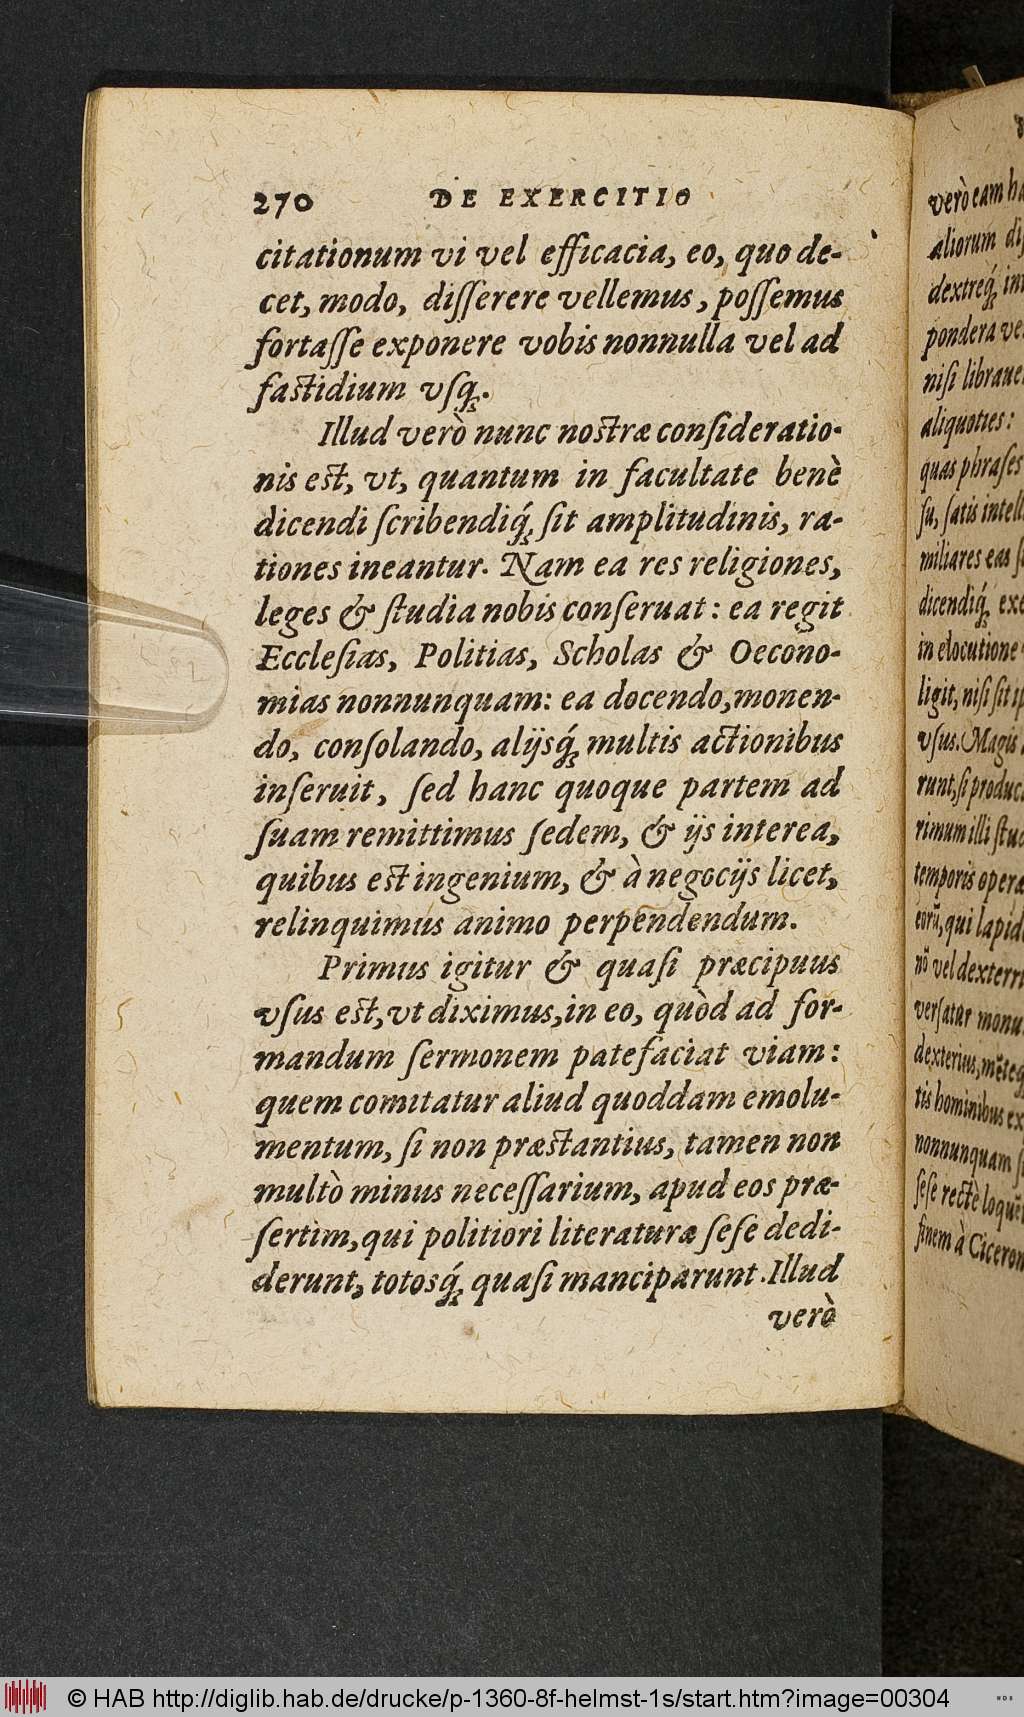 270 DE EXERCITIO
citationum vi vel efficacia, eo, quo de-
cet, modo, disserere vellemus, possemus
fortasse exponere vobis nonnulla vel ad
fastidium vsq́.
Illud verò nunc nostræ consideratio-
nis est, vt, quantum in facultate benè
dicendi scribendiq́ sit amplitudinis, ra-
tiones ineantur. Nam ea res religiones,
leges & studia nobis conseruat: ea regit
Ecclesias, Politias, Scholas & Oecono-
mias nonnunquam: ea docendo, monen-
do, consolando, alijsq́ multis actionibus
inseruit, sed hanc quoque partem ad
suam remittimus sedem, & ijs interea,
quibus est ingenium, & à negocijs licet,
relinquimus animo perpendendum.
Primus igitur & quasi præcipuus
vsus est, vt diximus, in eo, quòd ad for-
mandum sermonem patefaciat viam:
quem comitatur aliud quoddam emolu-
mentum, si non præstantius, tamen non
multò minus necessarium, apud eos præ-
sertìm, qui politiori literaturæ sese dedi-
derunt, totosq́ quasi manciparunt. Illud
verò
verò eam
aliorum
dextreq́
pondera
nisi
aliquoties:
quas phrases
su, satis
miliares eas
dicendiq́
in elocutione
ligit, nisi sit
vsus. Magis
runt, si
rimum illi
temporis
eorū, qui
nō vel
versatur
dexterius,
tis hominibus
nonnunquam
sese rectè
finem à
© HAB http://diglib.hab.de/drucke/p-1360-8f-helmst-1s/start.htm?image=00304